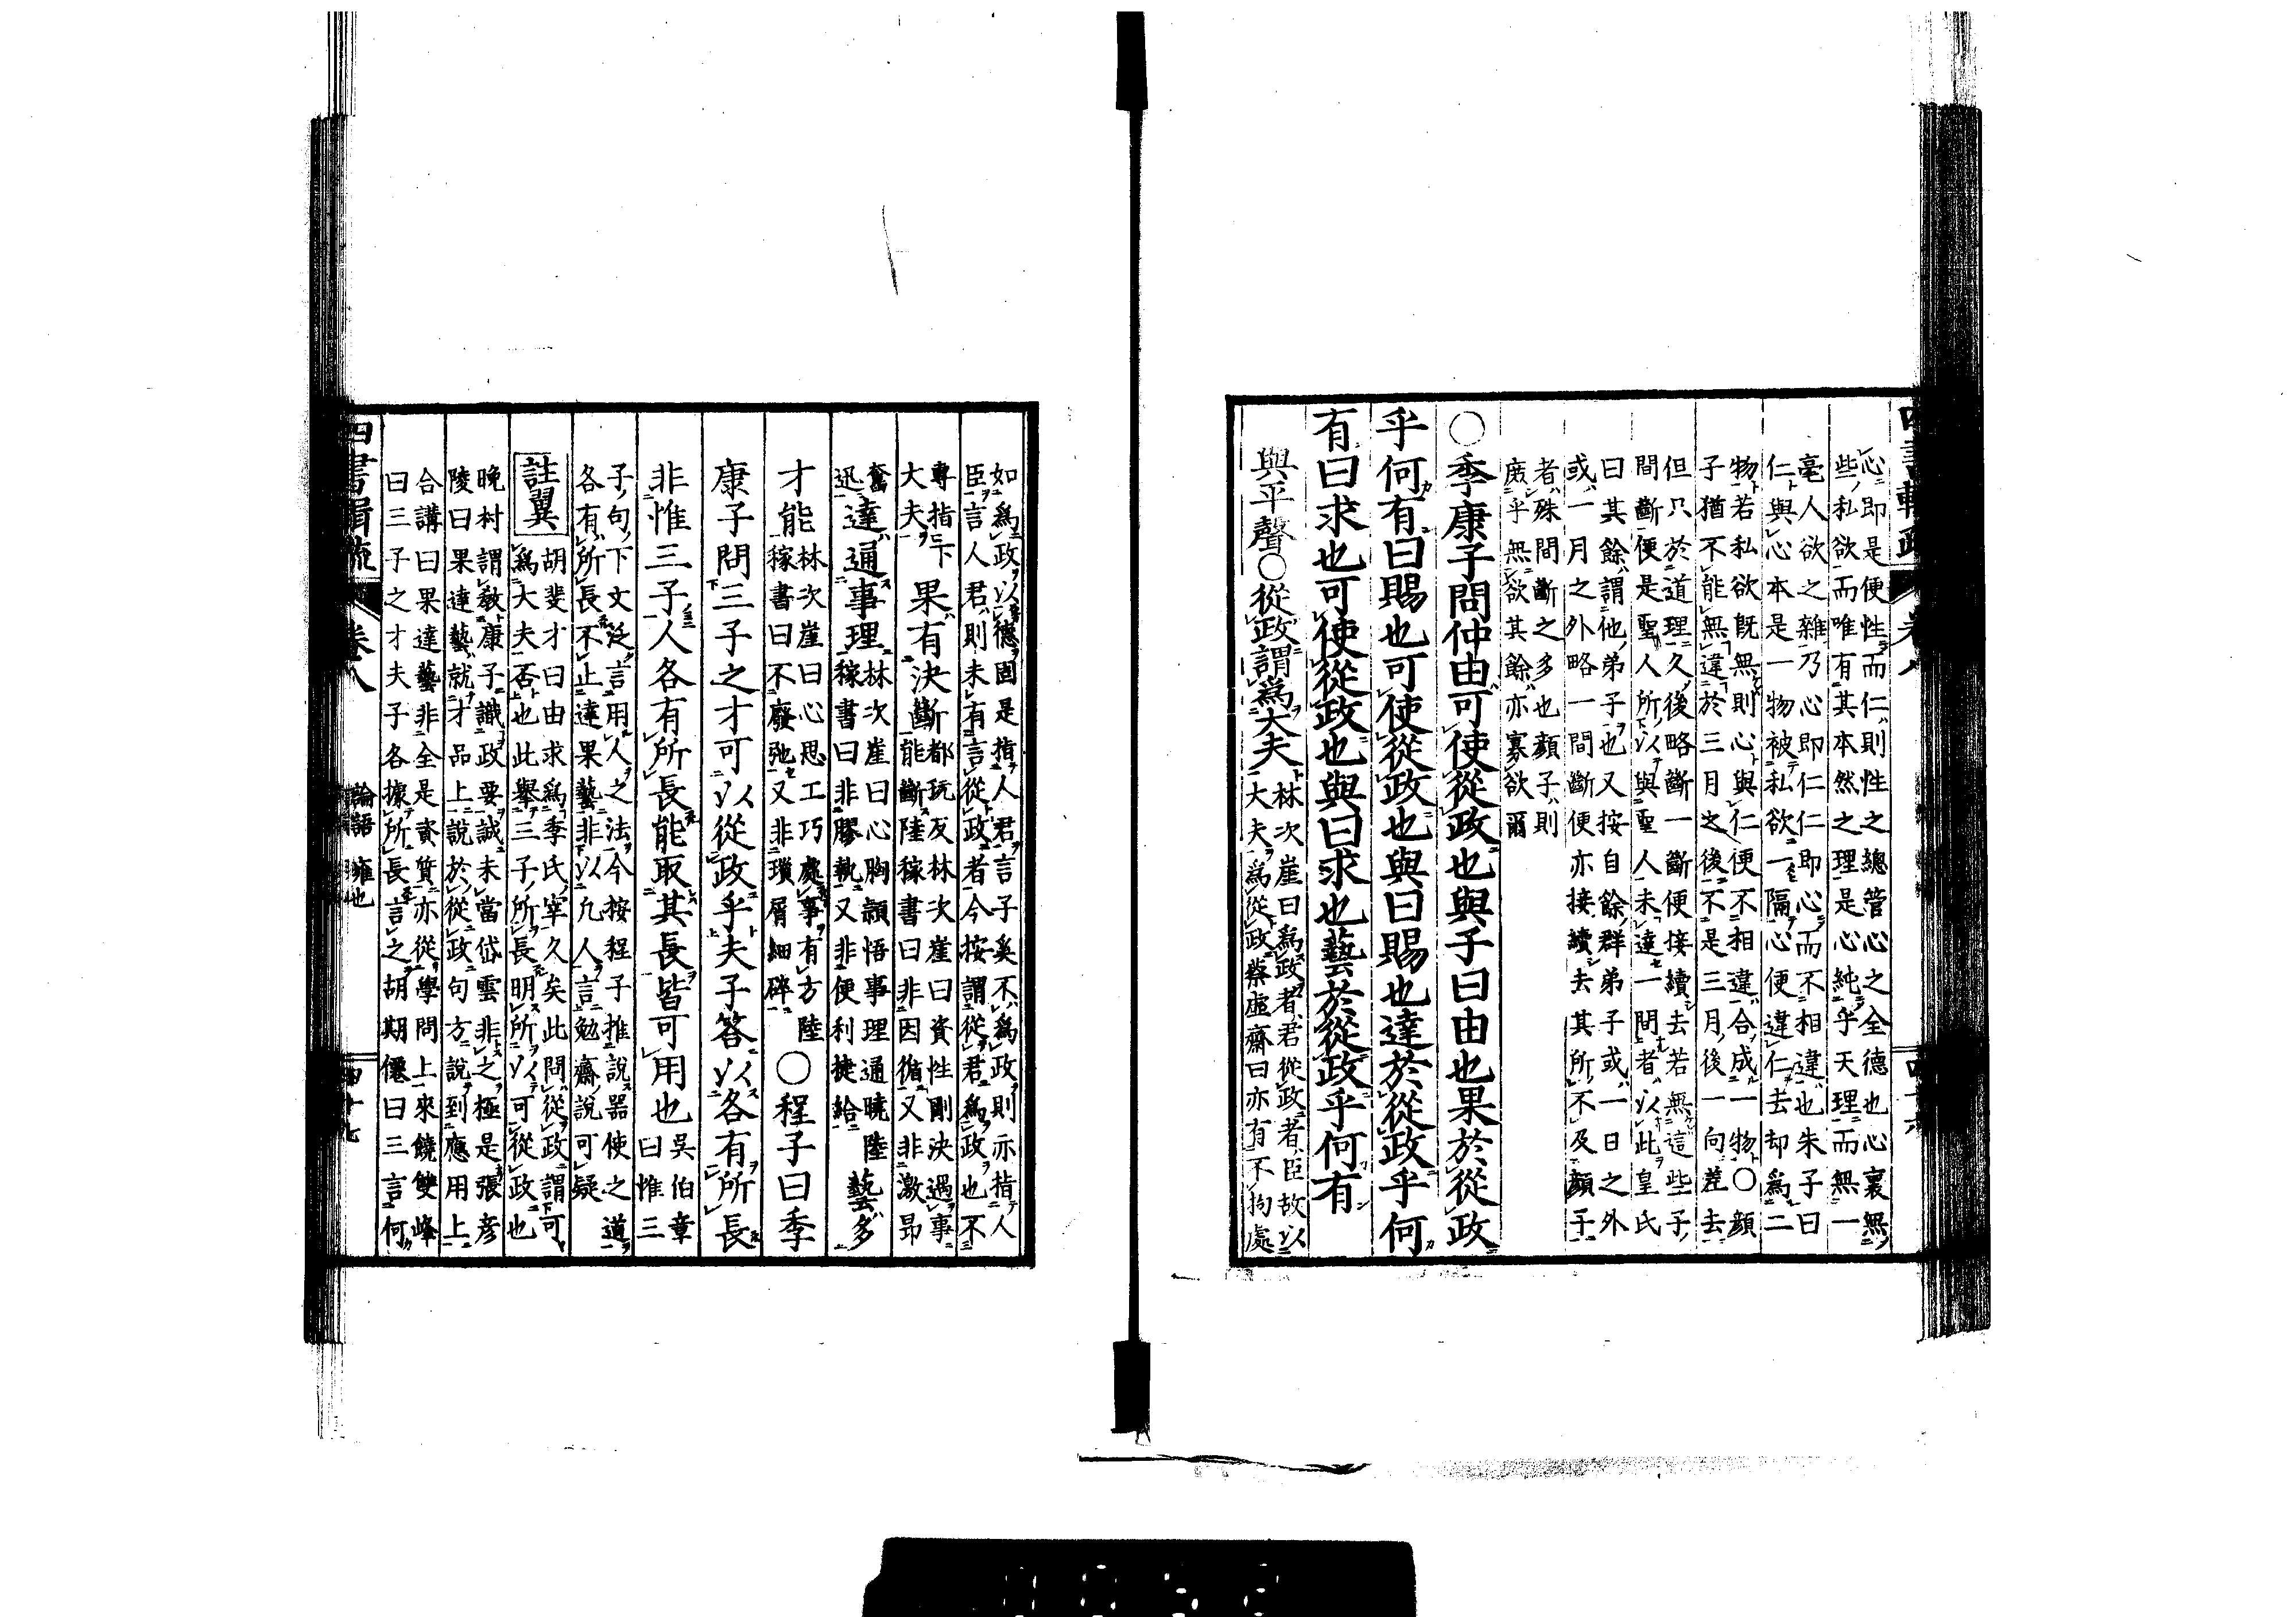 心即是便性而仁則性之總管心之全德也心裏無
些私欲而唯有其本然之理是心純乎天理而無一
毫人欲之雜乃心即仁仁即心而不相違也朱子曰
仁與心本是一物被私欲一隔心便違仁去却爲二
物若私欲既無則心與仁便不相違合成一物○顔
子猶不能無違於三月之後不是三月後一向差去
但只於道理久後略斷一斷便接續去若無這些子
間斷便是聖人所以與聖人未達一間者以此皇氏
曰其餘謂他弟子也又按自餘群弟子或一日之外
或一月之外略一間斷便亦接續去其所不及顔子
者殊間斷之多也顔子則
庻乎無欲其餘亦寡欲爾
○季康子問仲由可使從政也與子曰由也果於從政
乎何有曰賜也可使從政也與曰賜也達於從政乎何
有曰求也可使從政也與曰求也藝於從政乎何有
與平聲○從政謂爲大夫
林次崖曰爲政者君從政者臣故以
大夫爲從政蔡虚齋曰亦有不拘處
如爲政以德固是指人君言子奚不爲政則亦指人
臣言人君則未有言從政者今按謂從君爲政也不
專指下
大夫
果有決斷
都玩友林次崖曰資性剛決遇事
能斷陸稼書曰非因循又非激昻
奮
迅
達通事理
林次崖曰心胸頴悟事理通曉陸
稼書曰非膠執又非便利捷給
藝多
才能
林次崖曰心思工巧處事有方陸
稼書曰不廢弛又非瑣屑細碎
○程子曰季
康子問三子之才可以從政乎夫子答以各有所長
非惟三子人各有所長能取其長皆可用也
吳伯章
曰惟三
子句下文泛言用人之法今按程子推說器使之道
各有所長不止達果藝非以凢人言勉齋說可疑
註翼
胡斐才曰由求爲季氏宰久矣此問從政謂可
爲大夫否也此舉三子所長明所以可從政也
晚村謂敎康子識政要誠未當岱雲非之極是張彦
陵曰果達藝就才品上說於從政句方說到應用上
合講曰果達藝非全是資質亦從學問上來饒雙峰
曰三子之才夫子各據所長言之胡期僊曰三言何
四書輯疏
卷八
論語 雍也
四十七